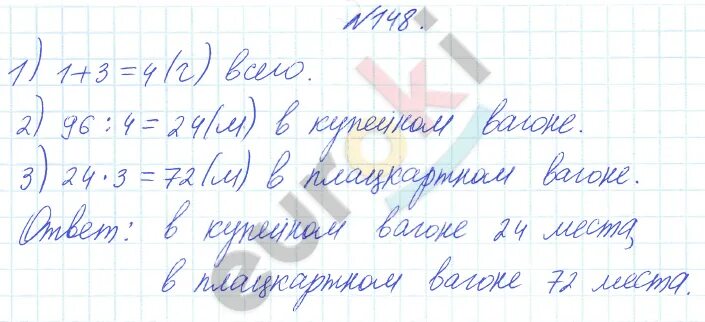 №148.
1) 1+3=4(ч) всего.
2) 96:4=24(м) в купейном вагоне.
3) 24·3=72(м) в плацкартном вагоне.
Ответ: в купейном вагоне 24 места,
в плацкартном вагоне 72 места.
euroki